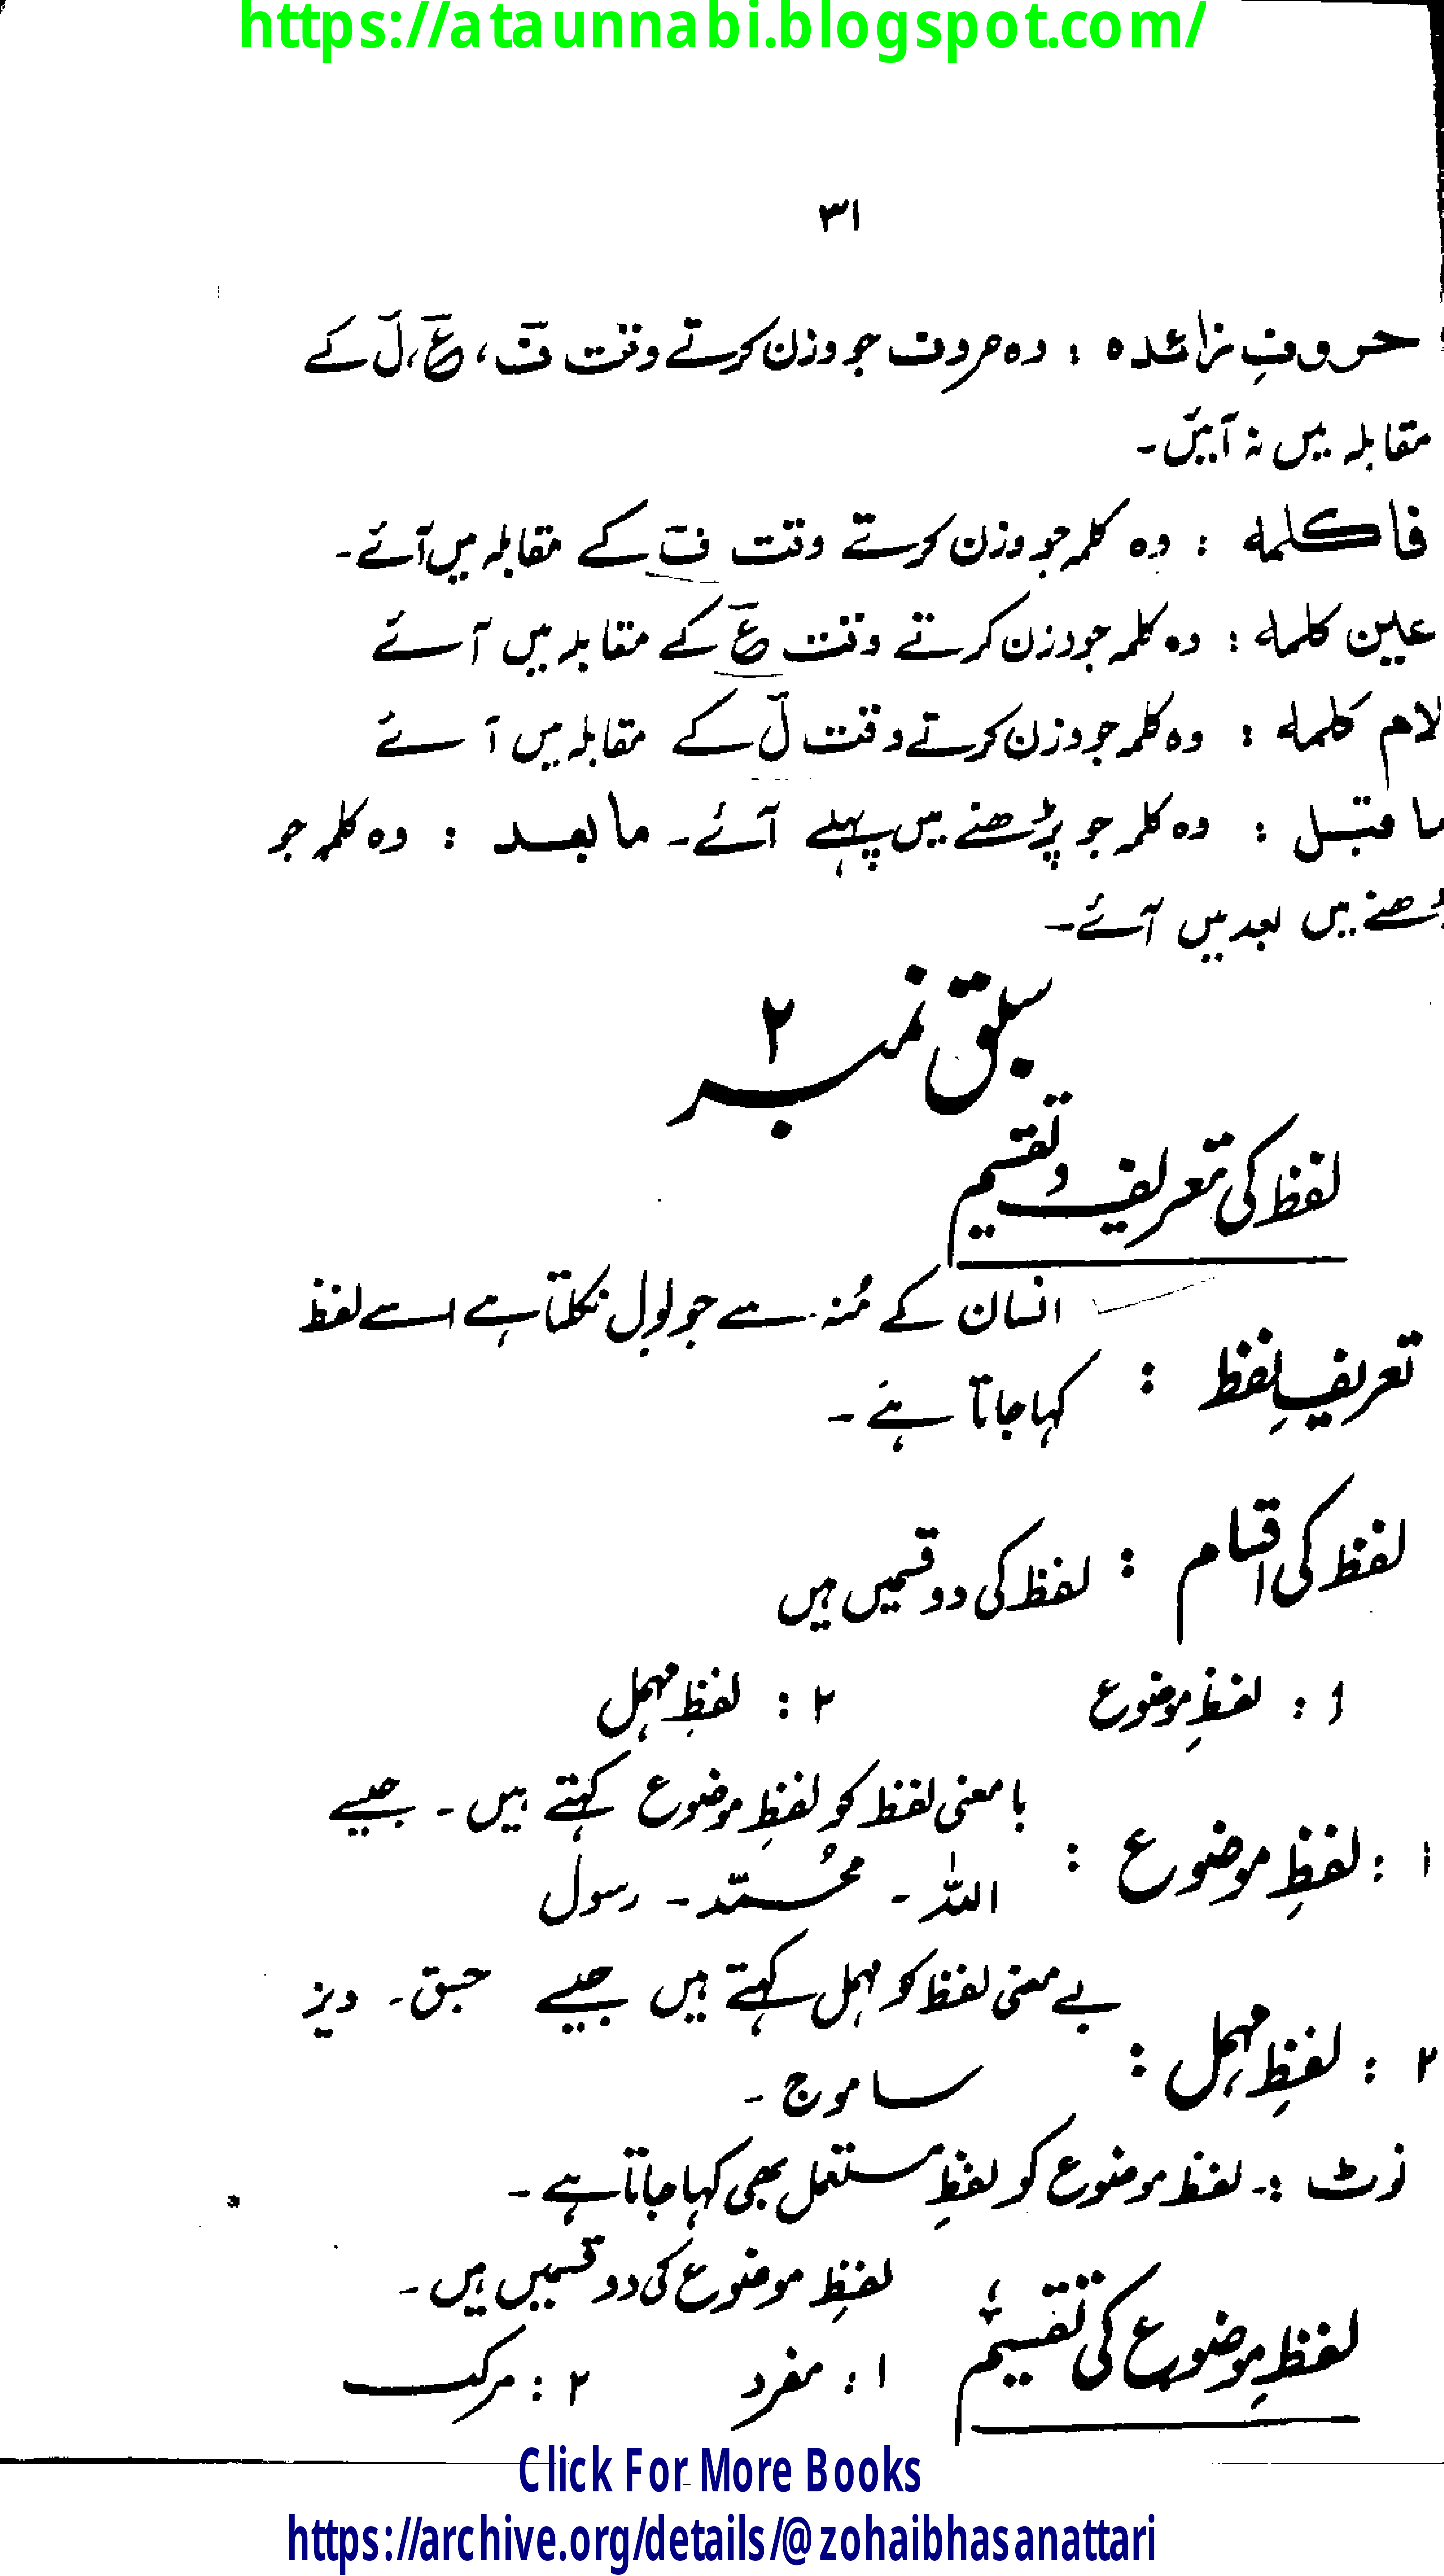 https://ataunnabi.blogspot.com/
۳۱
حروفِ زائدہ : وہ حروف جو وزن کرتے وقت فَ، عَ، لَ کے
مقابلہ میں نہ آئیں۔
فا کلمہ : وہ کلمہ جو وزن کرتے وقت فَ کے مقابلہ میں آئے۔
عین کلمہ : وہ کلمہ جو وزن کرتے وقت عَ کے مقابلہ میں آئے
لام کلمہ : وہ کلمہ جو وزن کرتے وقت لَ کے مقابلہ میں آئے
ما قبل : وہ کلمہ جو پڑھنے میں پہلے آئے۔ ما بعد : وہ کلمہ جو
پڑھنے میں بعد میں آئے۔
سبق نمبر ۲
لفظ کی تعریف و تقسیم
تعریفِ لفظ : انسان کے مُنہ سے جو بول نکلتا ہے اسے لفظ
کہا جاتا ہے۔
لفظ کی اقسام : لفظ کی دو قسمیں ہیں
۱ : لفظِ موضوع ۲ : لفظِ مہمل
۱ : لفظِ موضوع : با معنی لفظ کو لفظِ موضوع کہتے ہیں۔ جیسے
اللہ ۔ محُمّد ۔ رسول
۲ : لفظِ مہمل : بے معنی لفظ کو مہمل کہتے ہیں جیسے جبق۔ دیز
ساموج ۔
نوٹ :۔ لفظ موضوع کو لفظِ مستعمل بھی کہا جاتا ہے ۔
لفظِ موضوع کی تقسیم لفظِ موضوع کی دو قسمیں ہیں ۔
۱ : مفرد ۲ : مرکب
Click For More Books
https://archive.org/details/@zohaibhasanattari